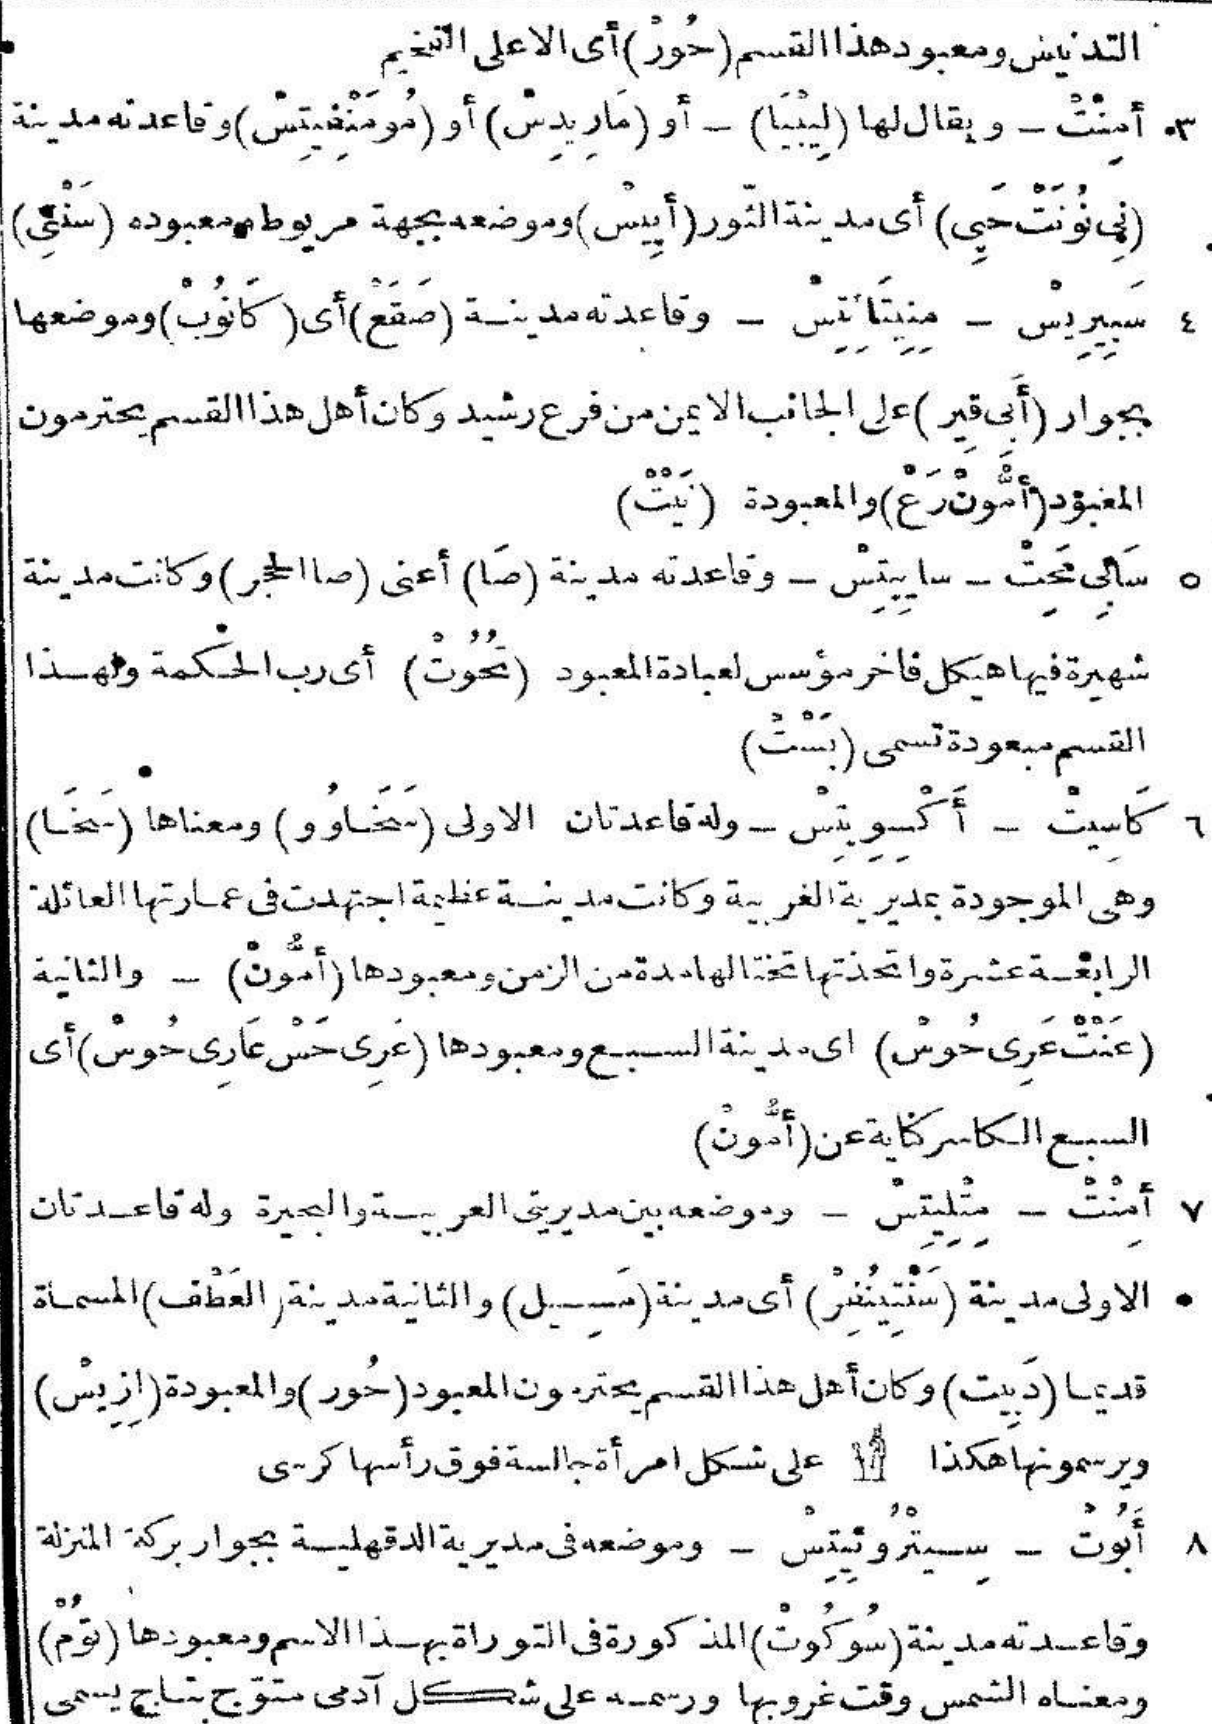 التدنيس ومعبود هذا القسم (حُورْ) أى الاعلى الفخيم
٣ أَمِنْتْ – ويقال لها (لِيبْيَا) – أو (مَارِيدِسْ) أو (مُومَنْفِيتِسْ) وقاعدته مدينة
(نِى نُونَتْ حَپِى) أى مدينة الثور (أَپِيسْ) وموضعه بجهة مريوط ومعبوده
٤ سَپِيرِيسْ – مِنِيتَائِتِسْ – وقاعدته مدينـة (صَقَعْ) أى (كَانُوبْ) وموضعها
بجوار (أَبِى قِير) على الجانب الايمن من فرع رشيد وكان أهل هذا القسم يحترمون
المعبود (أَمُّونْ رَعْ) والمعبودة (نَيْتْ)
٥ سَاپِى مَحِتْ – سايِيتِسْ – وقاعدته مدينة (صَا) أعنى (صا الحجر) وكانت مدينة
شهيرة فيها هيكل فاخر مؤسس لعبادة المعبود (تُحُوتْ) أى رب الحكمة ولهـذا
القسم مبعودة تسمى (بَسْتْ)
٦ كَاسِيتْ – أَكْسِوِيتِسْ – وله قاعدتان الاولى (سَخَـاوُو) ومعناها (سَخَـا)
وهى الموجودة بمديرية الغربية وكانت مدينـة عظيمة اجتهدت فى عمـارتها العائلة
الرابعـة عشرة واتخذتها تختا لها مدة من الزمن ومعبودها (أَمُّونْ) – والثانية
(عَنْتْ عَرِى حُوسْ) اى مدينة السبـع ومعبودها (عَرِى حَسْ عَارِى حُوسْ) أى
السبـع الكاسر كناية عن (أَمُّونْ)
٧ أَمِنْتْ – مِتْلِيتِسْ – وموضعه بين مديريتى الغربيـة والبحيرة وله قاعـدتان
الاولى مدينة (سَنْتِينُفِرْ) أى مدينة (مَسِيـل) والثانية مدينة (العَطْف) المسمـاة
قديمـا (دَپِيت) وكان أهل هذا القسم يحترمون المعبود (حُور) والمعبودة (اِزِيسْ)
ويرسمونها هكذا على شكل امرأة جالسة فوق رأسها كرسى
٨ أَبُوتْ – سِـيتْرُوئِيتِسْ – وموضعه فى مديرية الدقهليـة بجوار بركة المنزلة
وقاعـدته مدينة (سُوكُوتْ) المذكورة فى التوراة بهـذا الاسم ومعبودها (تُوْمْ)
ومعنـاه الشمس وقت غروبها ورسمـه على شكل آدمى متوّج بتـاج يسمى